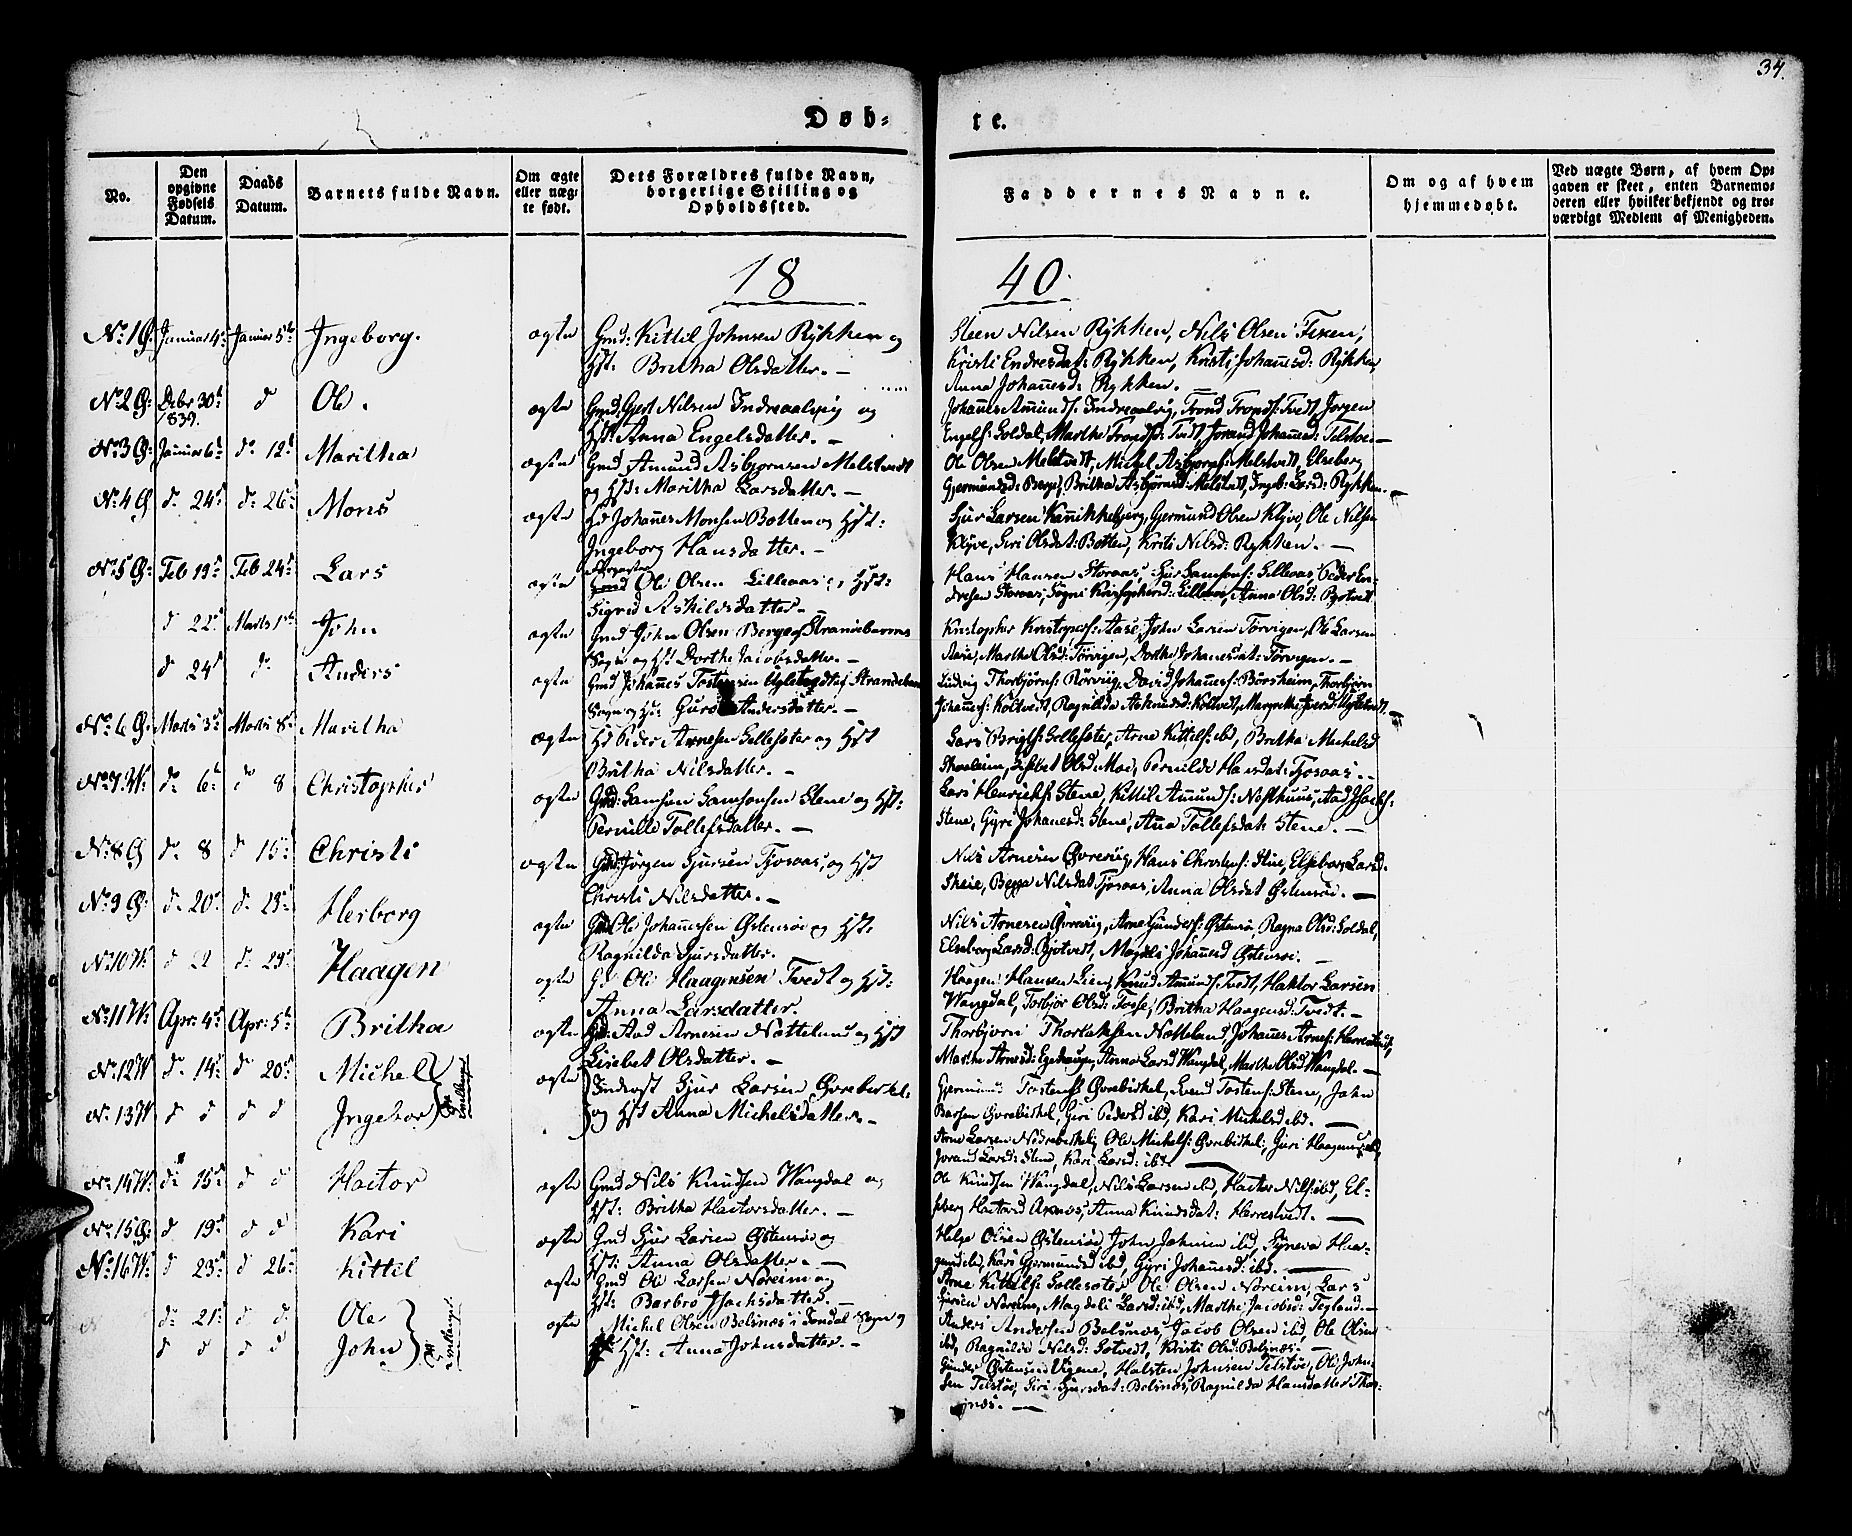 34.
Døb-
te.
No.
Den opgivne Fødsels Datum.
Daabs Datum.
Barnets fulde Navn.
Om ægte eller uægte født.
Dets Forældres fulde Navn, borgerlige Stilling og Opholdssted.
Faddernes Navne.
Om og af hvem hjemmedøbt.
Ved uægte Børn, af hvem Opgaven er skeet, enten Barnemoderen eller hvilket bekjendt og troværdigt Medlem af Menigheden.
18
40
No. 1 G: Januar 4 Januar 5 Ingeborg. ægte Gmd: Kittil Johnsen Rykken og
Hst: Britha Olsdatter. —
Steen Nilsen Rykken, Nils Olsen Fixen,
Kristi Endresdat: Rykken, Kristi Johannesd: Rykken
Anna Johannesd: Rykken. —
No. 2 G: Debr 30 1839. d Ole. ægte Gmd: Gjert Nilsen Indreaalvig og
Hst: Anna Engelsdatter. —
Johannes Amunds: Indreaalvig, Trond Tronds: Tvedt, Jørgen
Engels: Soldal, Marthe Trondsd: Tvedt, Jorand Johannesd: Telstøe —
No. 3 G: Januar 6 d: 12 Maritha ægte Gmd Amund Asbjørnsen Melstvedt
og Hst: Maritha Larsdatter. —
Ole Olsen Melstvedt, Michel Asbjørns: Melstvedt, Elseberg
Gjermundsd: Berge, Britha Asbjørnsd: Melstvedt, Ingeb: Larsd: Rykken. —
No. 4 G d: 24 d: 26 Mons ægte Hd Johannes Monsen Botten og Hst:
Ingeborg Hansdatter. —
Sjur Larsen Kannikkebjerg, Gjermund Olsen Klyve, Ole Nilsen
Klyve, Siri Olsdat: Botten, Kristi Nilsd: Rykken. —
No. 5 G: Feb 19 Feb 24 Lars ægte Ole Olsen Lilleaas og Hst:
Sigrid Askildsdatter. —
Hans Hansen Storaas, Sjur Samsons: Lilleaas, Peder En-
dresen Storaas, Sygni Kristophersd: Lilleaas, Anna Olsd: Bjotvedt
d 22 Marts 1 John ægte Gmd John Olsen Berge af Strandebarms
Sogn og Hst Dorthe Jacobsdatter. —
Kristopher Kristophers: Aase, John Larsen Tørvigen, Ole Larsen
Aase, Marthe Olsd: Tørvigen, Dorthe Johannesdat: Tørvigen. —
d 24 d: Anders ægte Gmd Johannes Tostensen Ugletvedt af Strandebarm
Sogn og Hst: Guro Andersdatter. —
Ludvig Thorbjørns: Rørvig, David Johannes: Børsheim, Thorbjørn
Johannes: Koltvedt, Ragnilda Aamundsd: Koltvedt, Margrethe Iversd: Ugletvedt. —
No. 6 G: Marts 3 Marts 8 Maritha ægte Hd Peder Arnesen Sollesøter og Hst
Britha Nilsdatter. —
Lars Brigts: Sollesøter, Arne Kittels: ibd, Britha Michelsd
Skaaleim, Lisebet Olsd: Moe, Pernilde Hansdat: Fosaas. —
No. 7 W: d: 6 d 8 Christopher ægte Gmd: Samson Samsonsen Stene og Hst:
Pernille Tollefsdatter. —
Lars Henricks: Stene, Kittil Amunds: Nesthuus, Aad Isacks:
Stene, Gyri Johannesd: Stene, Anna Tollefsdat: Stene. —
No. 8 G d: 8 d 15 Christi ægte Gmd: Jørgen Sjursen Fosaas, og Hst
Christi Nilsdatter. —
Nils Arnesen Øvrevig, Hans Christens: Skeie, Elseborg Larsd:
Skeie, Berge Nilsdat Fosaas, Anna Olsdat Østensøe. —
No. 9 G: d: 20 d: 23 Herborg ægte Gmd Ole Johannessen Østensøe og Hst:
Ragnilda Sjursdatter.
Nils Arnesen Øvrevig, Arne Gunders: Østensøe, Ragna Olsd: Soldal,
Elseborg Larsd: Bjotvedt, Magdeli Johannesd Østensøe. —
No. 10 W: d 22 d: 29 Haagen ægte Gmd Ole Haagensen Tvedt og Hst:
Anna Larsdatter.
Haagen Hansen Lien, Knud Amunds: Tvedt, Haktor Larsen
Wangdal, Torbjør Olsd: Tosse, Britha Haagensd: Tvedt. —
No. 11 W: Apr: 4 Apr: 5 Britha ægte Hd: Aad Arnesen Nottelund og Hst
Lisebet Olsdatter. —
Thorbjørn Thorlaksen Notteland, Johannes Arnes: Herrestvedt,
Marthe Arnesd: Egedraugen, Anna Larsd Wangdal, Marthe Olsd Wangdal. —
No. 12 W d: 14 d 20 Michel
No. 13 W d d d d Ingebor
Tvillinger
ægte Inderst Sjur Larsen Øvrebirkel:
og Hst Anna Michelsdatter. —
Gjermund Tostens Øvrebirkel, Svend Tostens: Stene, John
Larsen Øvrebirkel, Giri Pedersd ibd, Kari Mickelsd ibd. —
Arne Larsen Nedrebirkel, Ole Michels: Øvrebirkel, Guri Haagensd ibd,
Jorand Larsd: Stene, Kari Larsd: ibd. —
No. 14 W: d: 15 d d Hactor ægte Gmd Nils Knudsen Wangdal og
Hst: Britha Hactorsdatter. —
Ole Knudsen Wangdal, Nils Larsen ibd, Hactor Nils: ibd, El-
seberg Hactorsd Axnes, Anna Knudsdat: Herrestvedt. —
No. 15 G: d 19 d d Kari ægte Gmd Sjur Larsen Østensøe og
Hst: Anna Olsdatter. —
Helge Olsen Østensøe, John Johnsen ibd, Synneva Haa-
gensd ibd, Kari Gjermundsd ibd, Gyri Johannesd: ibd. —
No. 16 W: d 23 d 26 Kittel ægte Gmd Ole Larsen Noreim og
Hst: Barbro Isachsdatter. —
Arne Kittels: Sollesøter, Ole Olsen Noreim, Lars
Sjursen Noreim, Magdeli Larsd: ibd, Marthe Jacobsd: Tegland. —
d: 21 d: d: Ole
d d d d John
Tvillinger
ægte Michel Olsen Belsnæs i Jondal Sogn og
Hst: Anna Johnsdatter. —
Anders Andersen Belsnæs, Jacob Olsen ibd, Ole Olsen
ibd, Ragnilda Nilsd: Sotvedt, Kristi Olsd: Belsnæs. —
Gunder Østensen Vigene, Halsten Johnsen Telstøe, Ole John-
sen Telstøe, Siri Sjursdat: Belsnæs, Ragnilda Hansdatter Thor-
snæs. —